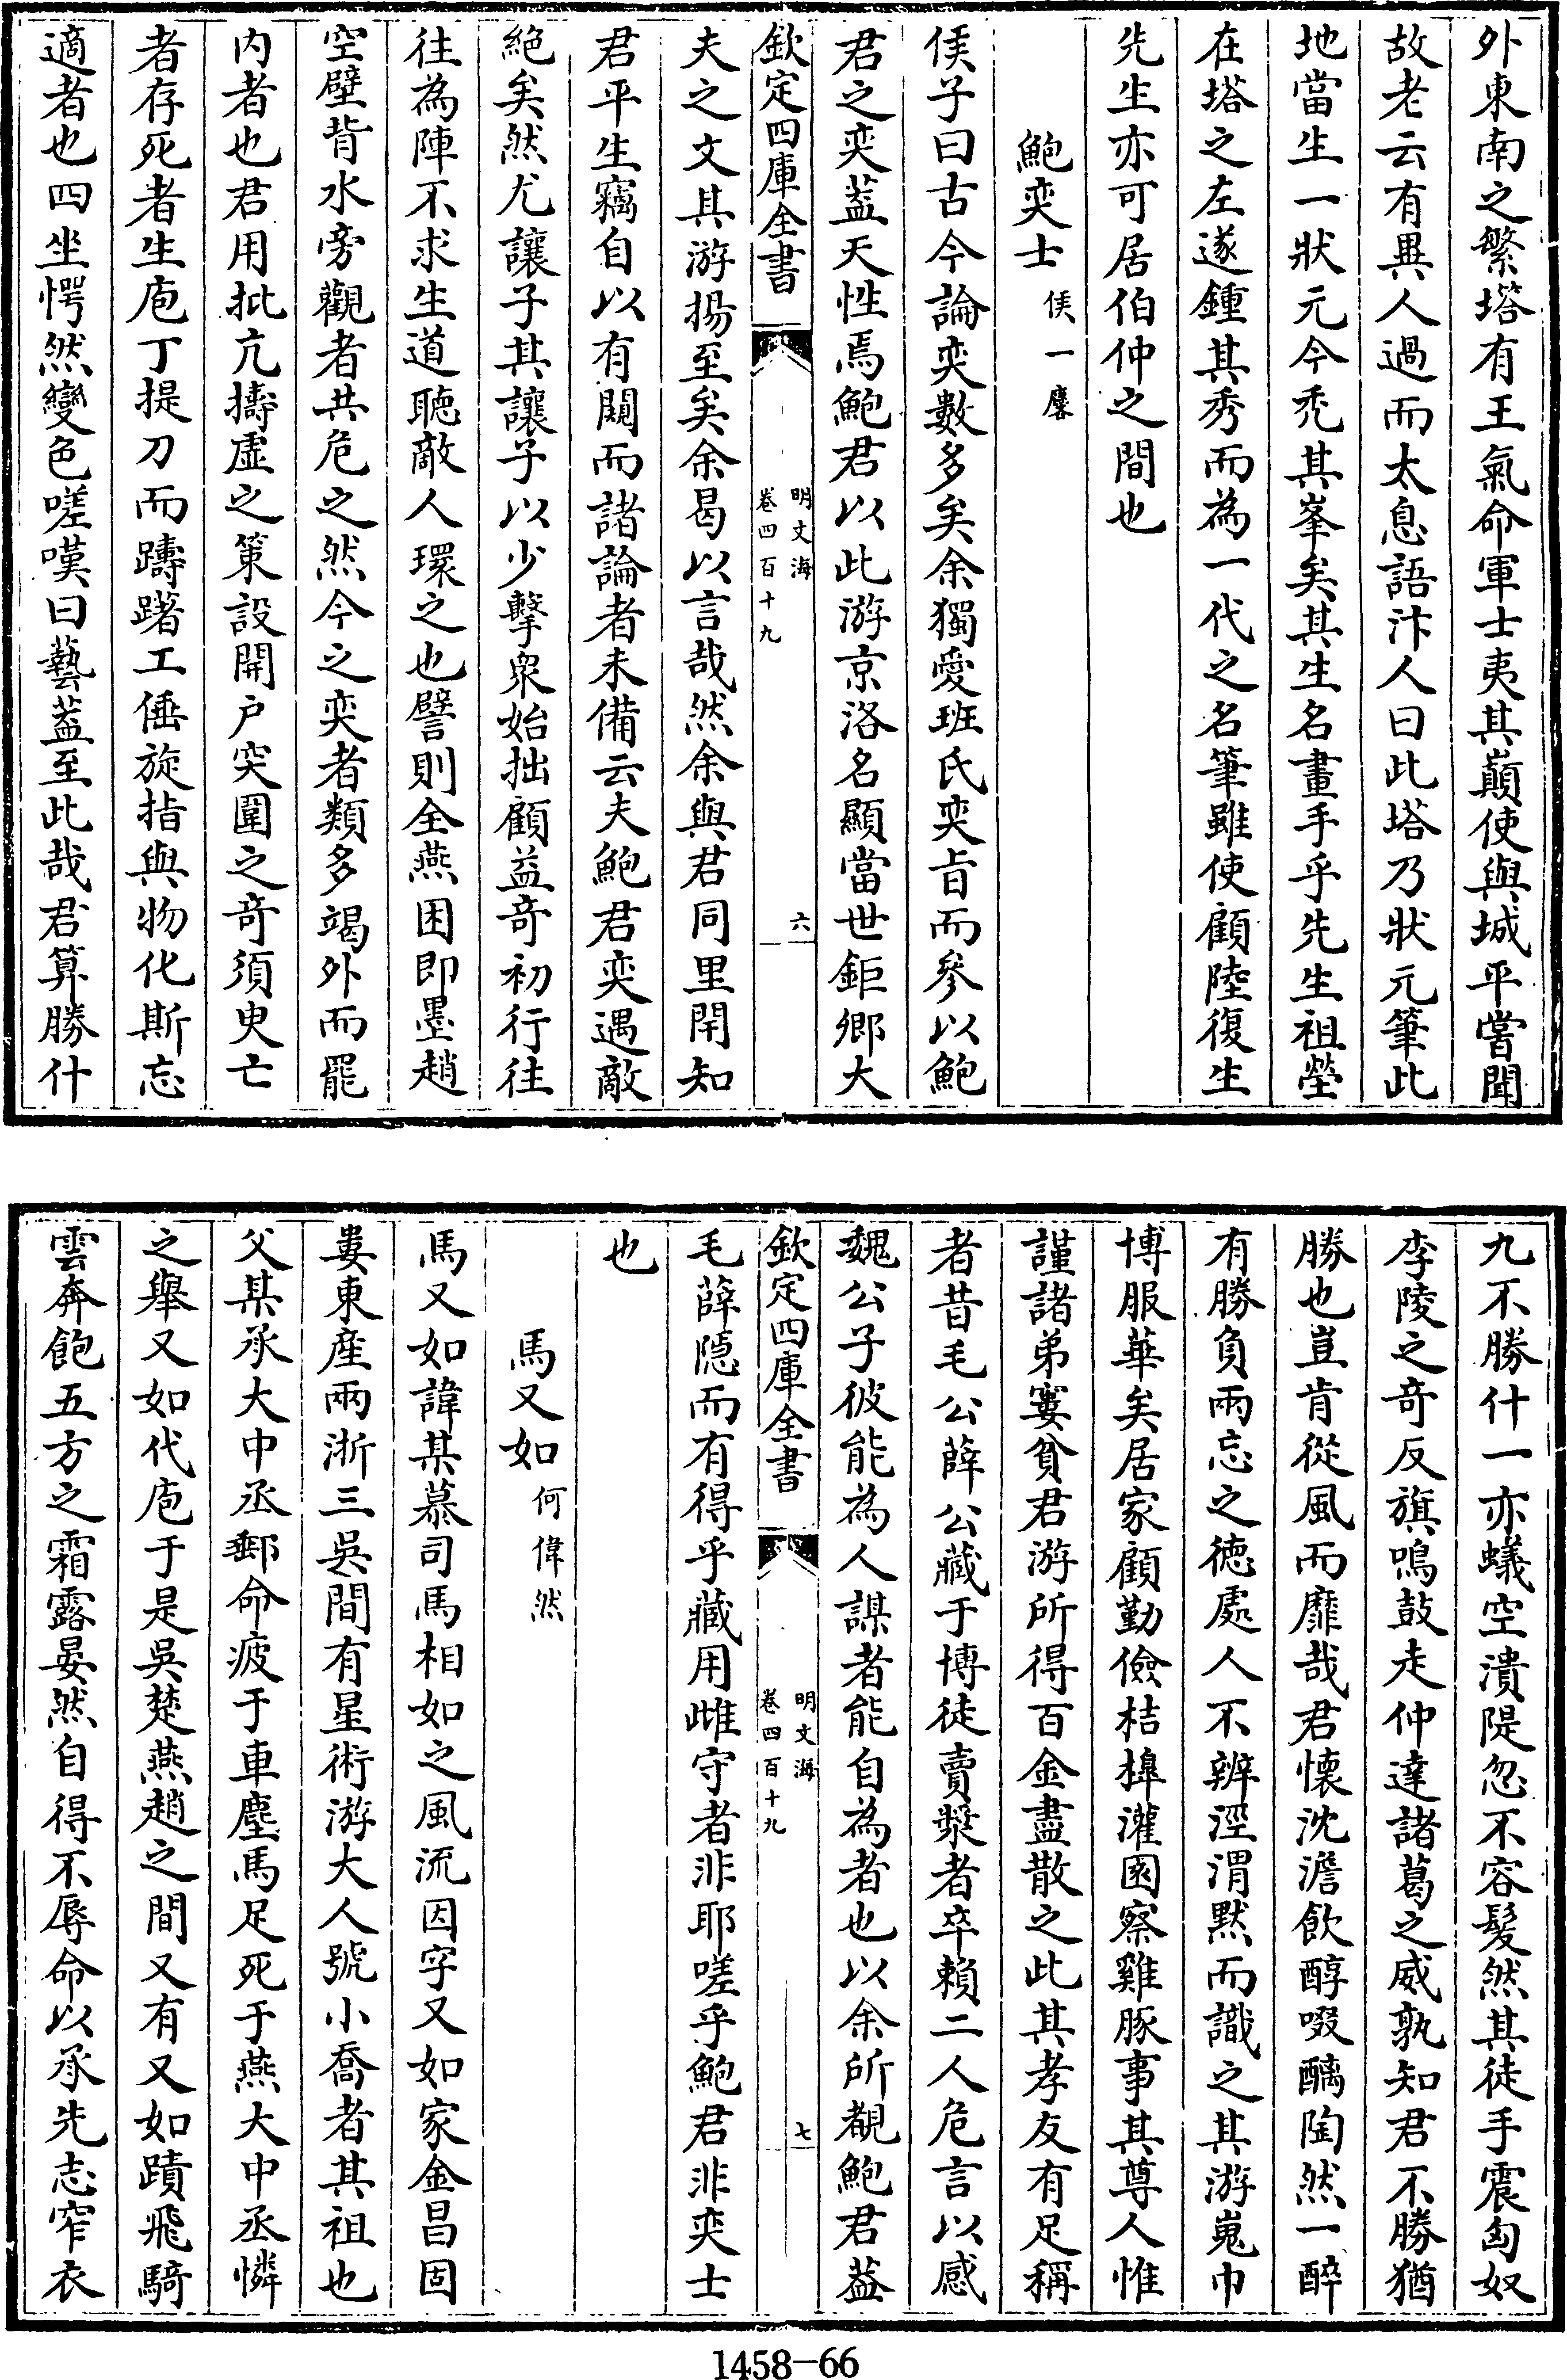 外東南之繁塔有王氣命軍士夷其巔使與城平嘗聞
故老云有異人過而太息語汴人曰此塔乃狀元筆此
地當生一狀元今禿其峯矣其生名畫手乎先生祖塋
在塔之左遂鍾其秀而為一代之名筆雖使顧陸復生
先生亦可居伯仲之間也
鮑奕士 侯一麐
侯子曰古今論奕數多矣余獨愛班氏奕㫖而參以鮑
君之奕葢天性焉鮑君以此游京洛名顯當世鉅卿大
欽定四庫全書 明文海 卷四百十九 六
夫之文其游揚至矣余曷以言哉然余與君同里閈知
君平生竊自以有闚而諸論者未備云夫鮑君奕遇敵
絶矣然尤讓子其讓子以少擊衆始拙顧益奇初行往
往為陣不求生道聽敵人環之也譬則全燕困即墨趙
空壁背水旁觀者共危之然今之奕者類多竭外而罷
内者也君用批亢擣虛之策設開户突圍之奇須臾亡
者存死者生庖丁提刀而躊躇工倕旋指與物化斯忘
適者也四坐愕然變色嗟嘆曰藝葢至此哉君算勝什
九不勝什一亦蟻空潰隄忽不容髮然其徒手震匈奴
李陵之奇反旗鳴鼓走仲達諸葛之威孰知君不勝猶
勝也豈肯從風而靡哉君懐沈澹飲醇啜醨陶然一醉
有勝負兩忘之徳處人不辨涇渭黙而識之其游嵬巾
博服華矣居家顧勤儉桔槹灌園察雞豚事其尊人惟
謹諸弟窶貧君游所得百金盡散之此其孝友有足稱
者昔毛公薛公藏于博徒賣漿者卒賴二人危言以感
魏公子彼能為人謀者能自為者也以余所覩鮑君葢
欽定四庫全書 明文海 卷四百十九 七
毛薛隱而有得乎藏用雌守者非耶嗟乎鮑君非奕士
也
馬又如 何偉然
馬又如諱某慕司馬相如之風流因字又如家金昌固
婁東産兩浙三吳間有星術游大人號小喬者其祖也
父某承大中丞郵命疲于車塵馬足死于燕大中丞憐
之舉又如代庖于是吳楚燕趙之間又有又如蹟飛騎
雲奔飽五方之霜露晏然自得不辱命以承先志窄衣
1458-66